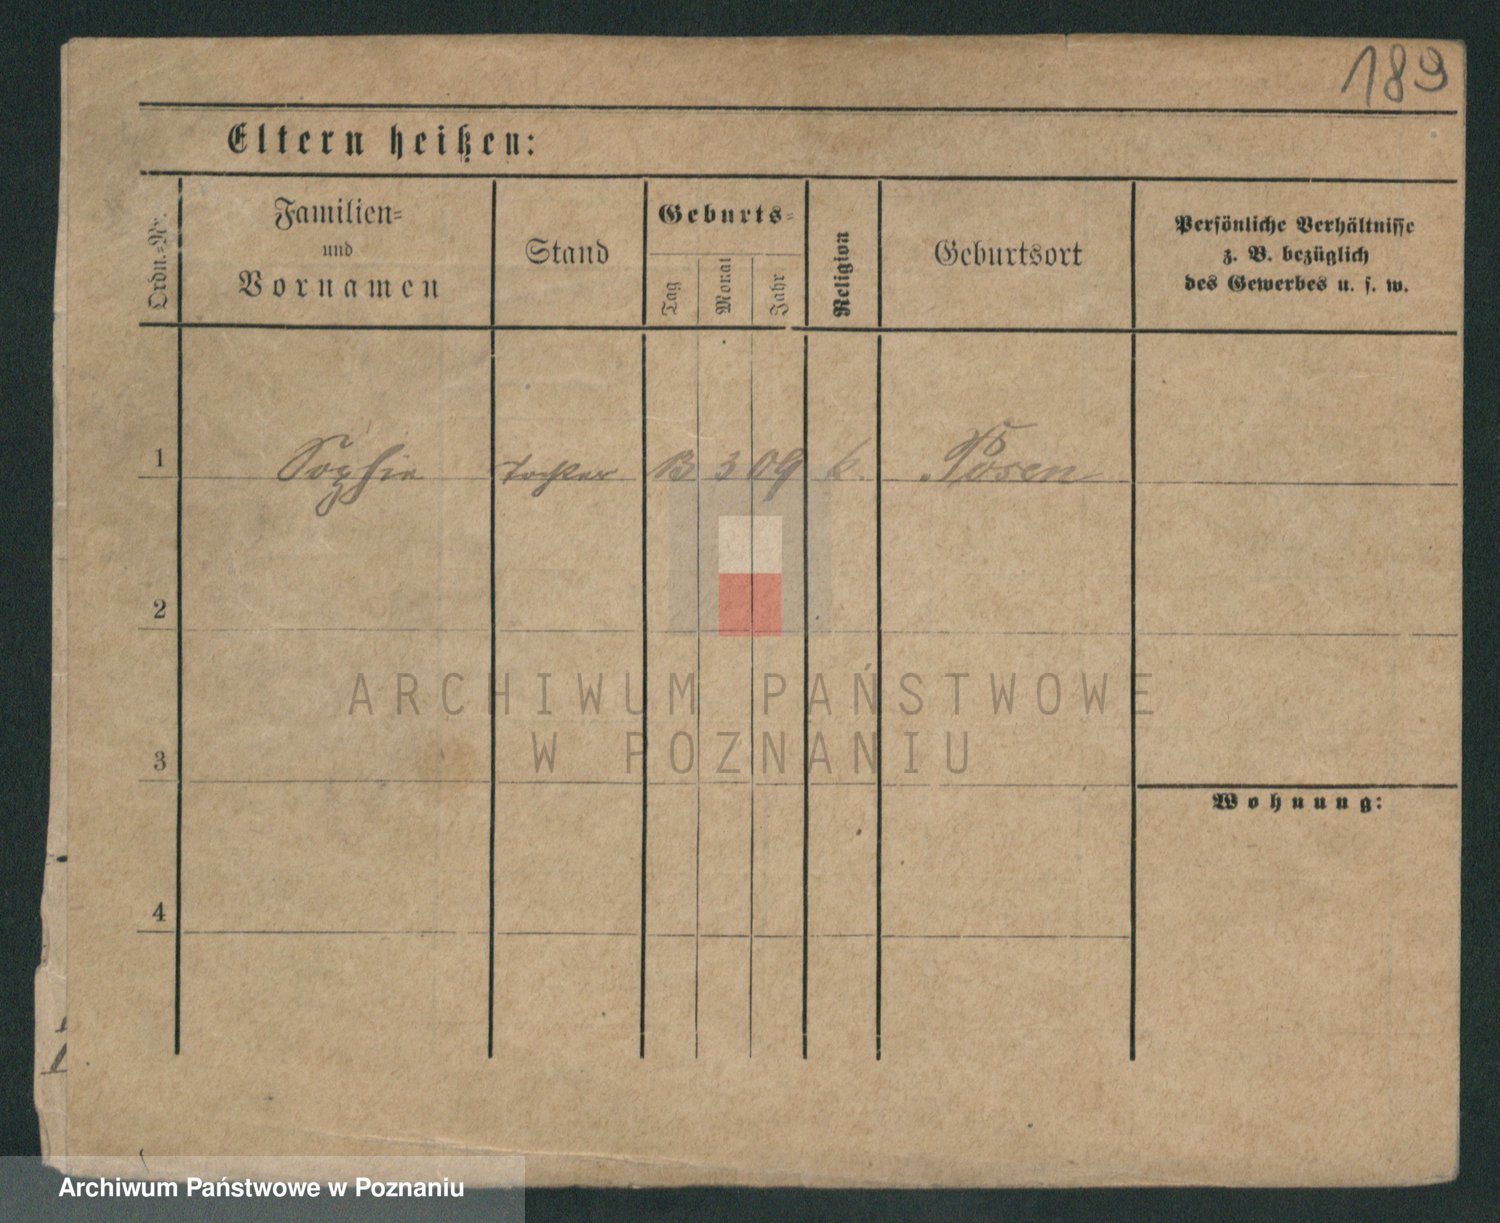 189
Eltern heißen:
Ordn.-Nr.
Familien-
und
Vornamen
Stand
Geburts-
Tag
Monat
Jahr
Religion
Geburtsort
Persönliche Verhältnisse
z. B. bezüglich
des Gewerbes u. s. w.
1 Sophie Tochter 3 09 k. Posen
2
ARCHIWUM PAŃSTWOWE
W POZNANIU
3
Wohnung:
4
Archiwum Państwowe w Poznaniu